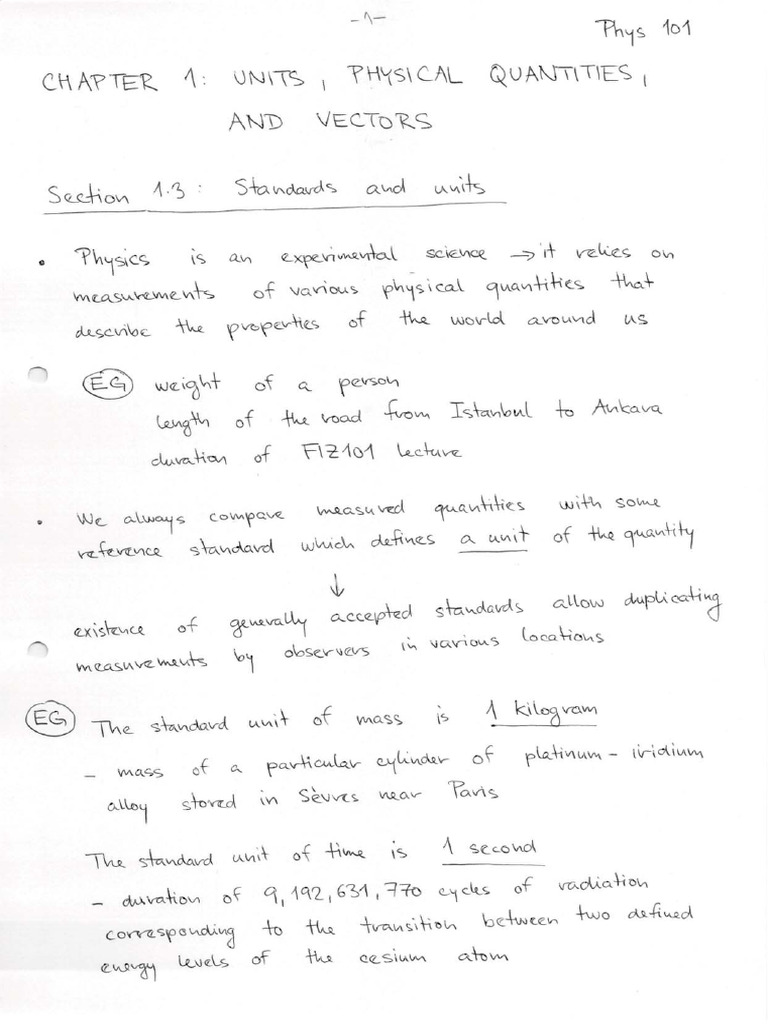 -1-
Phys 101
CHAPTER 1: UNITS, PHYSICAL QUANTITIES,
AND VECTORS
Section 1.3: Standards and units
• Physics is an experimental science → it relies on
measurements of various physical quantities that
describe the properties of the world around us
EG weight of a person
length of the road from Istanbul to Ankara
duration of FIZ101 lecture
• We always compare measured quantities with some
reference standard which defines a unit of the quantity
↓
existence of generally accepted standards allow duplicating
measurements by observers in various locations
EG The standard unit of mass is 1 kilogram
- mass of a particular cylinder of platinum-iridium
alloy stored in Sèvres near Paris
The standard unit of time is 1 second
- duration of 9,192,631,770 cycles of radiation
corresponding to the transition between two defined
energy levels of the cesium atom